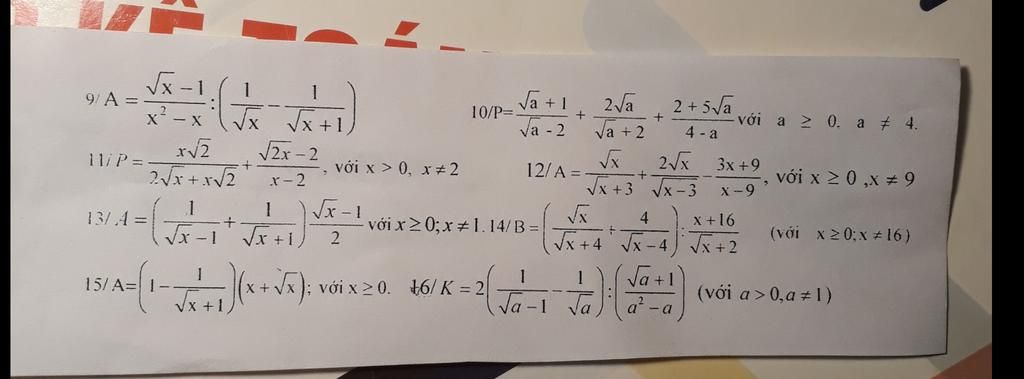 KẾ TOÁN
9/ A = (√x − 1)/(x² − x) : (1/√x − 1/(√x + 1))
10/P= (√a + 1)/(√a - 2) + 2√a/(√a + 2) + (2 + 5√a)/(4 - a) với a ≥ 0. a ≠ 4.
11/ P = x√2/(2√x + x√2) + (√2x − 2)/(x − 2), với x > 0, x ≠ 2
12/ A = √x/(√x + 3) + 2√x/(√x − 3) − (3x + 9)/(x − 9), với x ≥ 0 ,x ≠ 9
13/ A = (1/(√x − 1) + 1/(√x + 1)) (√x − 1)/2 với x ≥ 0; x ≠ 1.
14/ B = (√x/(√x + 4) + 4/(√x − 4)) : (x + 16)/(√x + 2) (với x ≥ 0; x ≠ 16)
15/ A= (1 − 1/(√x + 1))(x + √x); với x ≥ 0.
16/ K = 2(1/(√a − 1) − 1/√a) : ((√a + 1)/(a² − a)) (với a > 0, a ≠ 1)